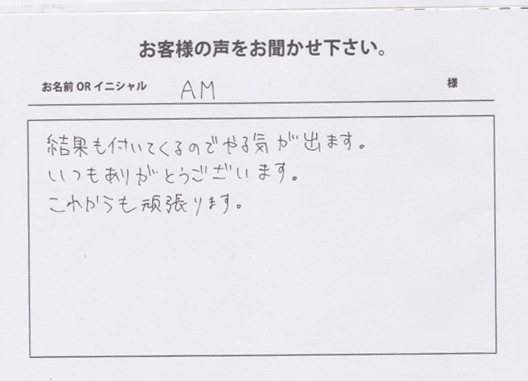 お客様の声をお聞かせ下さい。
お名前 OR イニシャル AM 様
結果も付いてくるのでやる気が出ます。
いつもありがとうございます。
これからも頑張ります。